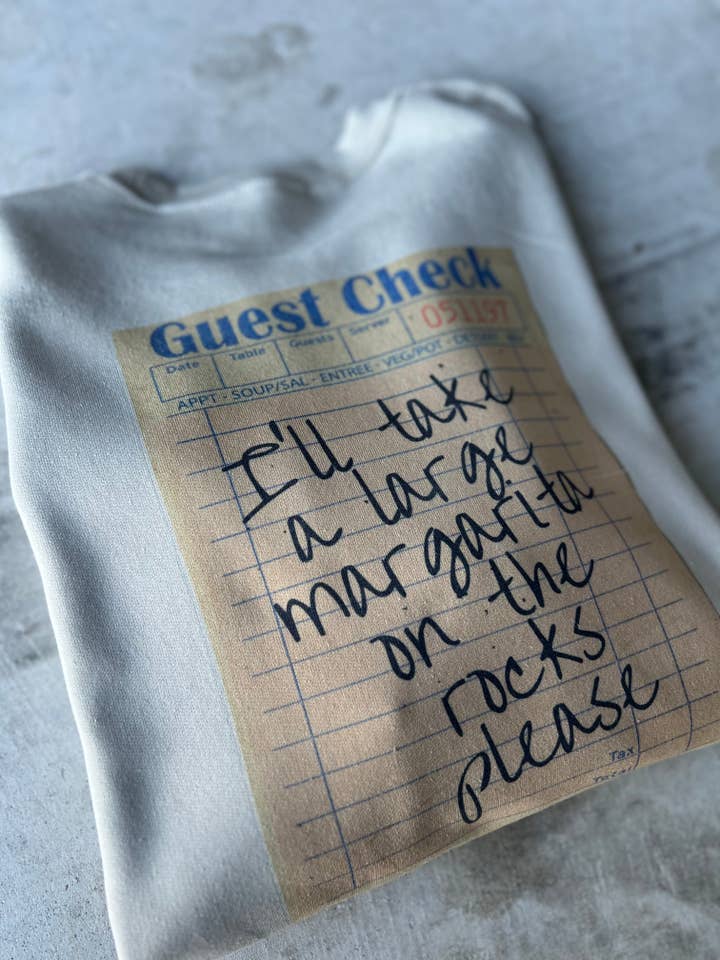 Guest Check
Date Table Guests Server 051197
APPT - SOUP/SAL - ENTREE - VEG/POT - DESSERT - BEV
I'll take
a large
margarita
on the
rocks
please
Tax
Total